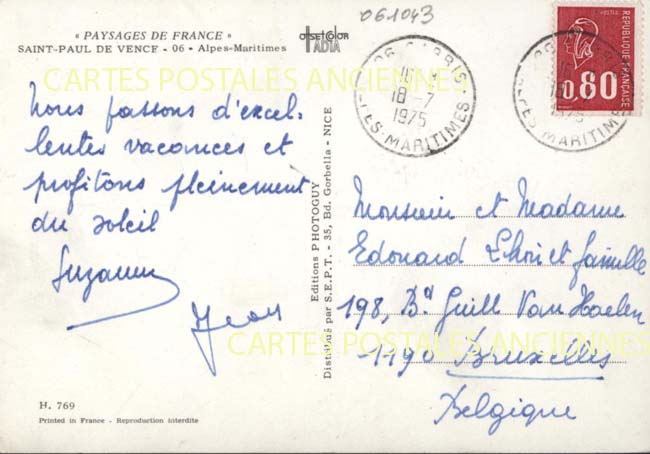 061043
« PAYSAGES DE FRANCE »
SAINT-PAUL DE VENCE - 06 - Alpes-Maritimes
OFFSETCOLOR
IADIA
CARTES POSTALES ANCIENNES
Nous passons d'excel-
lentes vacances et
profitons pleinement
du soleil
Suzanne
Jean
Editions PHOTOGUY
Distribué par S.E.P.T. - 35, Bd. Gorbella - NICE
06 CARRIS
16
18-7
1975
ALPES-MARITIMES
REPUBLIQUE FRANÇAISE
POSTES
0,80
06
18-7
1975
ALPES-MARITIMES
Monsieur et Madame
Edouard et famille
198, Bd Guill Van Haelen
1190 Bruxelles
Belgique
CARTES POSTALES ANCIENNES
H. 769
Printed in France - Reproduction interdite